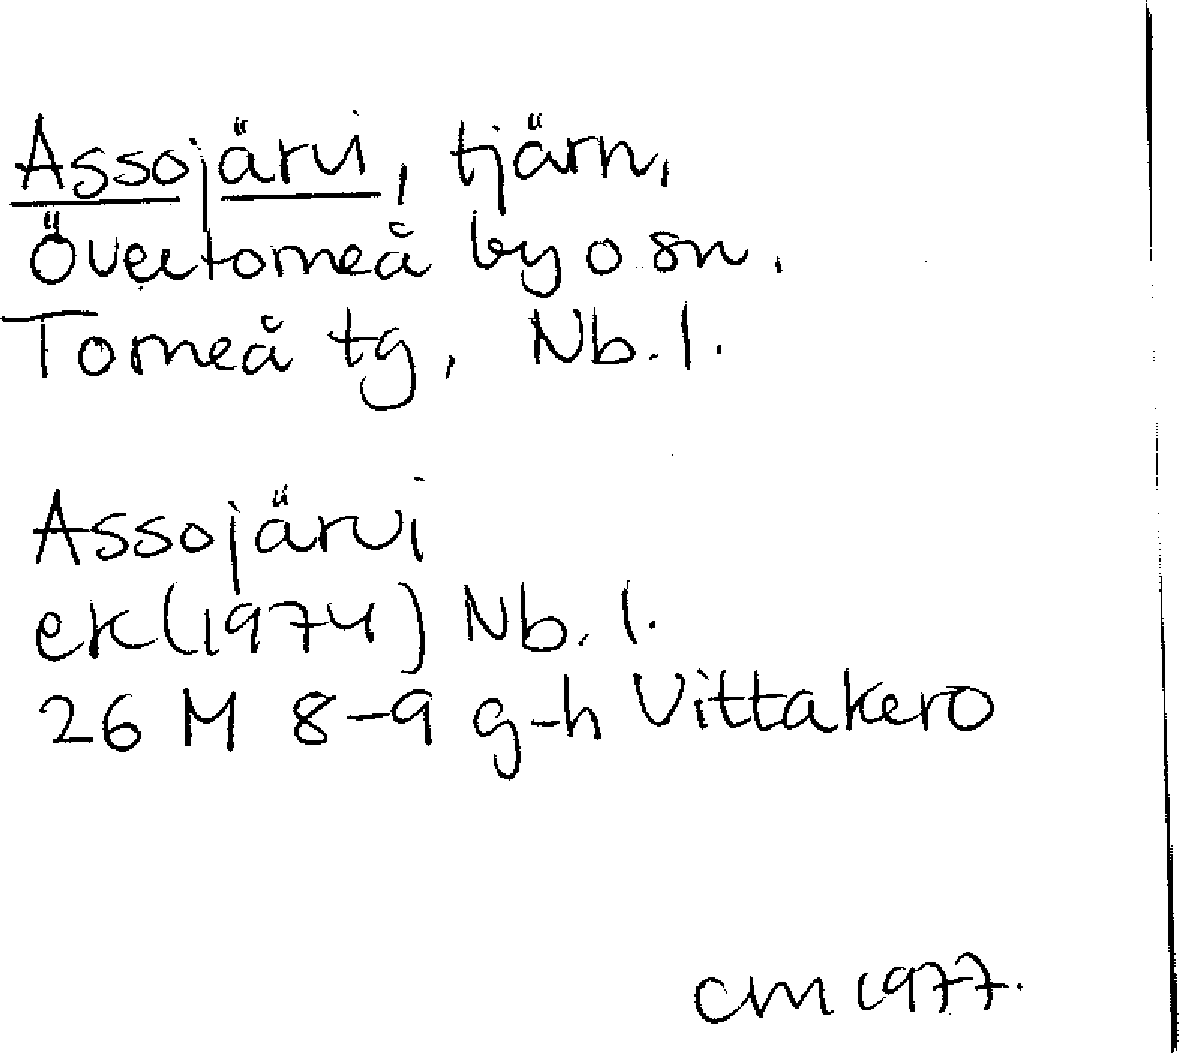 Assojärvi, tjärn,
Övertorneå by o sn.
Torneå tg, Nb. l.
Assojärvi
ek (1974) Nb. l.
26 M 8-9 g-h Vittakero
CM 1977.